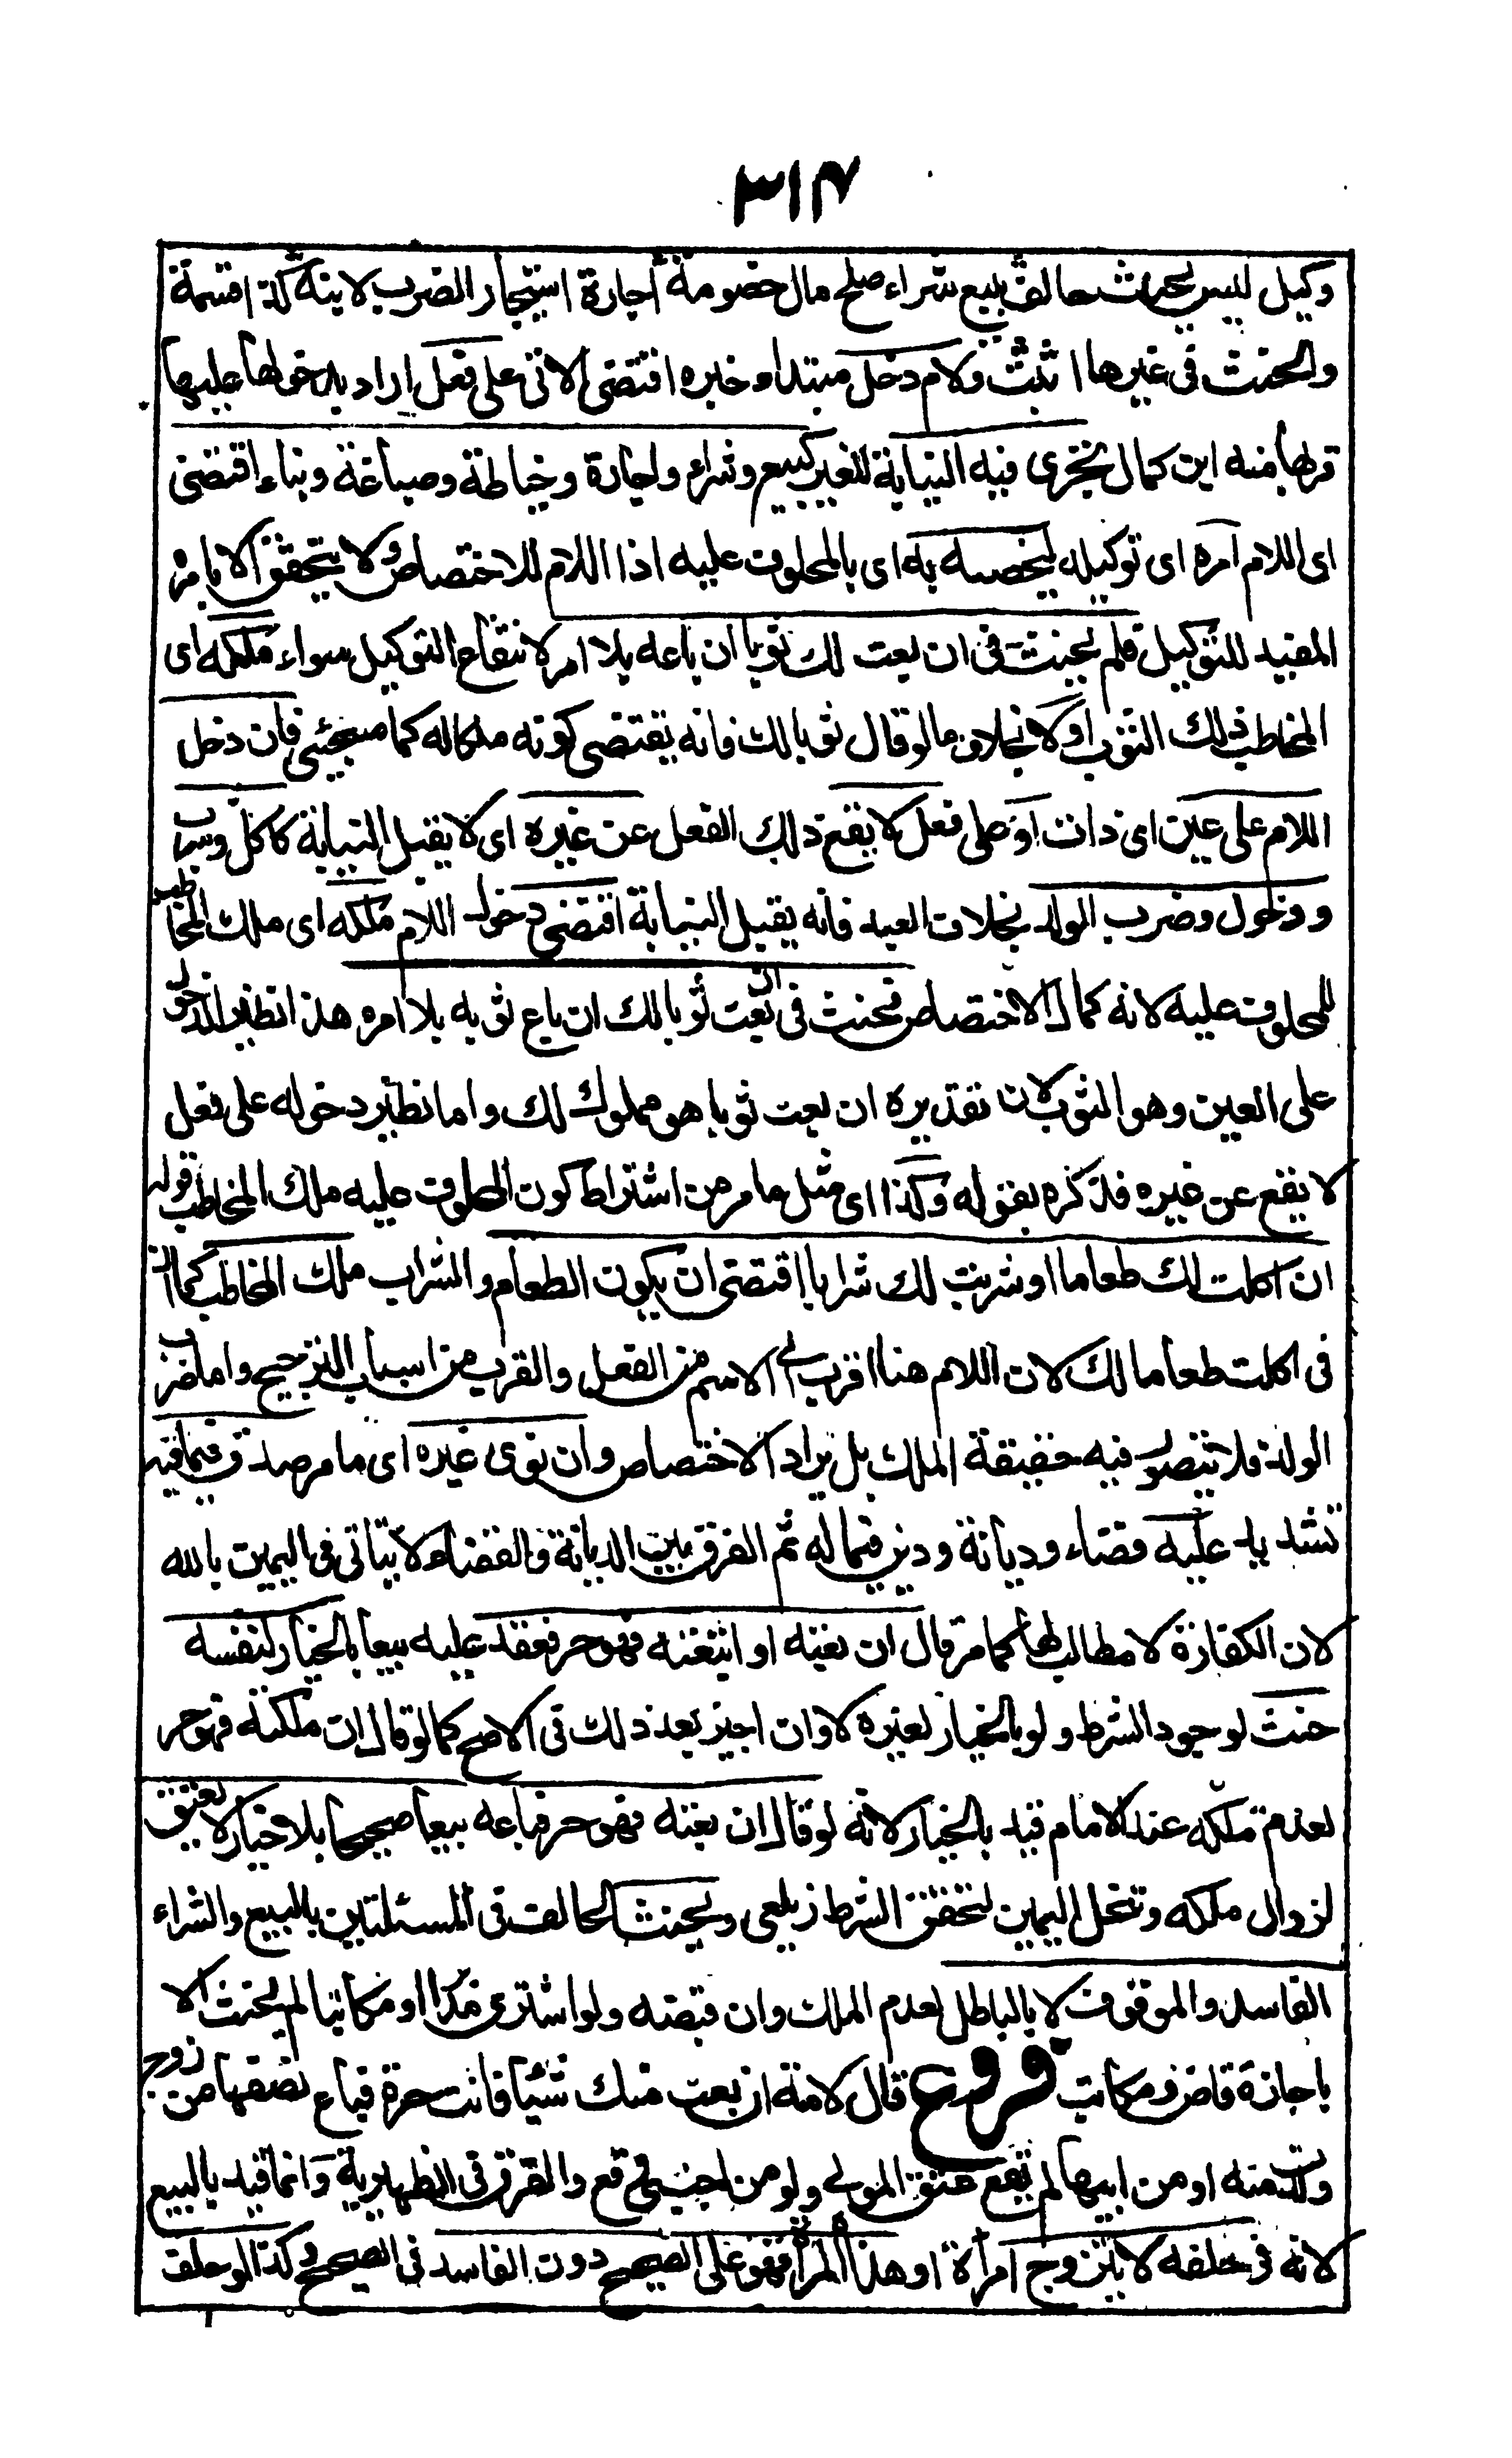 ٣١٧
وكيل ليس يحنث حالف ببيع شراء صلح مال خصومة اجارة استيجار الضرب لابنه كذا قسمة
والحنث فى غيرها اثبت ولام دخل مبتداء وخبره اقتضى الاتى على فعل اراد بدخولها عليها
قربها منه ابن كمال تجرى فيه النيابة للغير كبيع وشراء واجارة وخياطة وصياغة وبناء اقتضى
اى اللام امره اى توكيله ليخصه به اى بالمحلوف عليه اذ اللام للاختصاص ولا يتحقق الا بامره
المفيد للتوكيل فلم يحنث فى ان بعت لك ثوبا ان باعه بلا امر لانتفاء التوكيل سواء ملكه اى
المخاطب ذلك الثوب او لا بخلاف ما لو قال ثوبا لك فانه يقتضى كونه ملكا له كما سيجئ فان دخل
اللام على عين اى ذات او على فعل لا يقع ذلك الفعل عن غيره اى لا يقبل النيابة كاكل وشرب
ودخول وضرب الولد بخلاف العبد فانه يقبل النيابة اقتضى دخول اللام ملكه اى ملك المخاطب
للمحلوف عليه لانه كمال الاختصاص فحنث فى ان بعت ثوبا لك ان باع ثوبه بلا امره هذا نظير الدخول
على العين وهو الثوب لان تقديره ان بعت ثوبا هو مملوك لك واما نظير دخوله على فعل
لا يقع عن غيره فذكره بقوله وكذا اى مثل ما مر من اشتراط كون المحلوف عليه ملك المخاطب قوله
ان اكلت لك طعاما او شربت لك شرابا اقتضى ان يكون الطعام والشراب ملك المخاطب كما ان
فى اكلت طعاما لك لان اللام هنا اقرب الى الاسم من الفعل والقرب من اسباب الترجيح واما ضرب
الولد فلا يتصور فيه حقيقة الملك بل يراد الاختصاص وان نوى غيره اى ما مر صدق فيما فيه
تشديد عليه قضاء وديانة ودين فيما له ثم الفرق بين الديانة والقضاء لا يتاتى فى اليمين بالله
لان الكفارة لا مطالب لها كما مر قال ان بعته او ابتعته فهو حر فعقد عليه بيعا بالخيار لنفسه
حنث لوجود الشرط ولو بالخيار لغيره لا وان اجيز بعد ذلك فى الاصح كما لو قال ان ملكته فهو حر
لعدم ملكه عند الامام قيد بالخيار لانه لو قال ان بعته فهو حر فباعه بيعا صحيحا بلا خيار لا يعتق
لزوال ملكه وتنحل اليمين لتحقق الشرط زيلعى ويحنث الحالف فى المسئلتين بالبيع والشراء
الفاسد والموقوف لا بالباطل لعدم الملك وان قبضه ولو اشترى مدبرا او مكاتبا لم يحنث الا
باجازة قاض ومكاتب فروع قال لامة ان بعت منك شيئا فانت حرة فباع نصفها من زوج
ولدت منه او من ابيها لم يقع عتق المولى ولو من اجنبى وقع والفرق فى الظهيرية وانما قيد بالبيع
لانه فى حلفه لا يتزوج امرأة او هذه المرأة فهو على الصحيح دون الفاسد فى الصحيح وكذا لو حلف